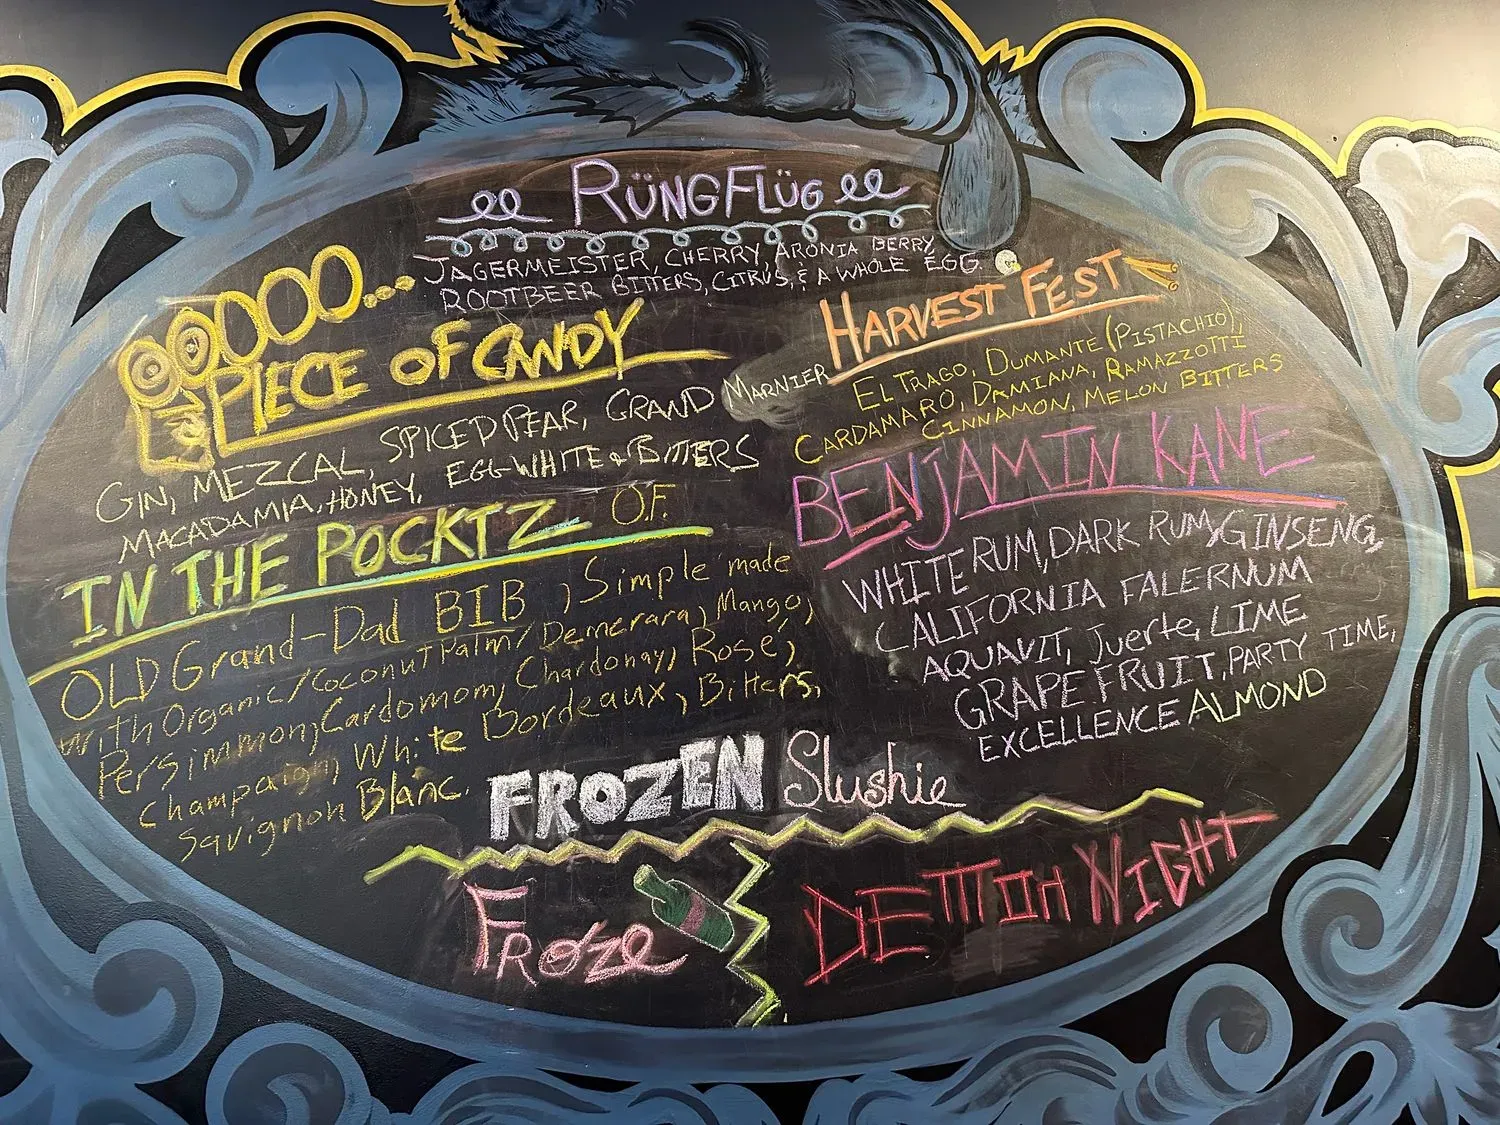 RÜNGFLÜG
JAGERMEISTER, CHERRY, ARONIA BERRY,
ROOTBEER BITTERS, CITRUS, & A WHOLE EGG.
OOOOO...
PIECE OF CANDY
GIN, MEZCAL, SPICED PEAR, GRAND MARNIER
MACADAMIA, HONEY, EGG-WHITE & BITTERS
IN THE POCKTZ O.F.
OLD Grand-Dad BIB, Simple made
with Organic/Coconut Palm/Demerara, Mango,
Persimmon, Cardomom, Chardonay, Rosé,
Champaign, White Bordeaux, Bitters,
Savignon Blanc.
HARVEST FEST
EL TRAGO, DUMANTE (PISTACHIO),
CARDAMARO, DAMIANA, RAMAZZOTTI
CINNAMON, MELON BITTERS
BENJAMIN KANE
WHITE RUM, DARK RUM, GINSENG,
CALIFORNIA FALERNUM
AQUAVIT, Juerte, LIME
GRAPE FRUIT, PARTY TIME,
EXCELLENCE ALMOND
FROZEN Slushie
FROZE
DEMON NIGHT